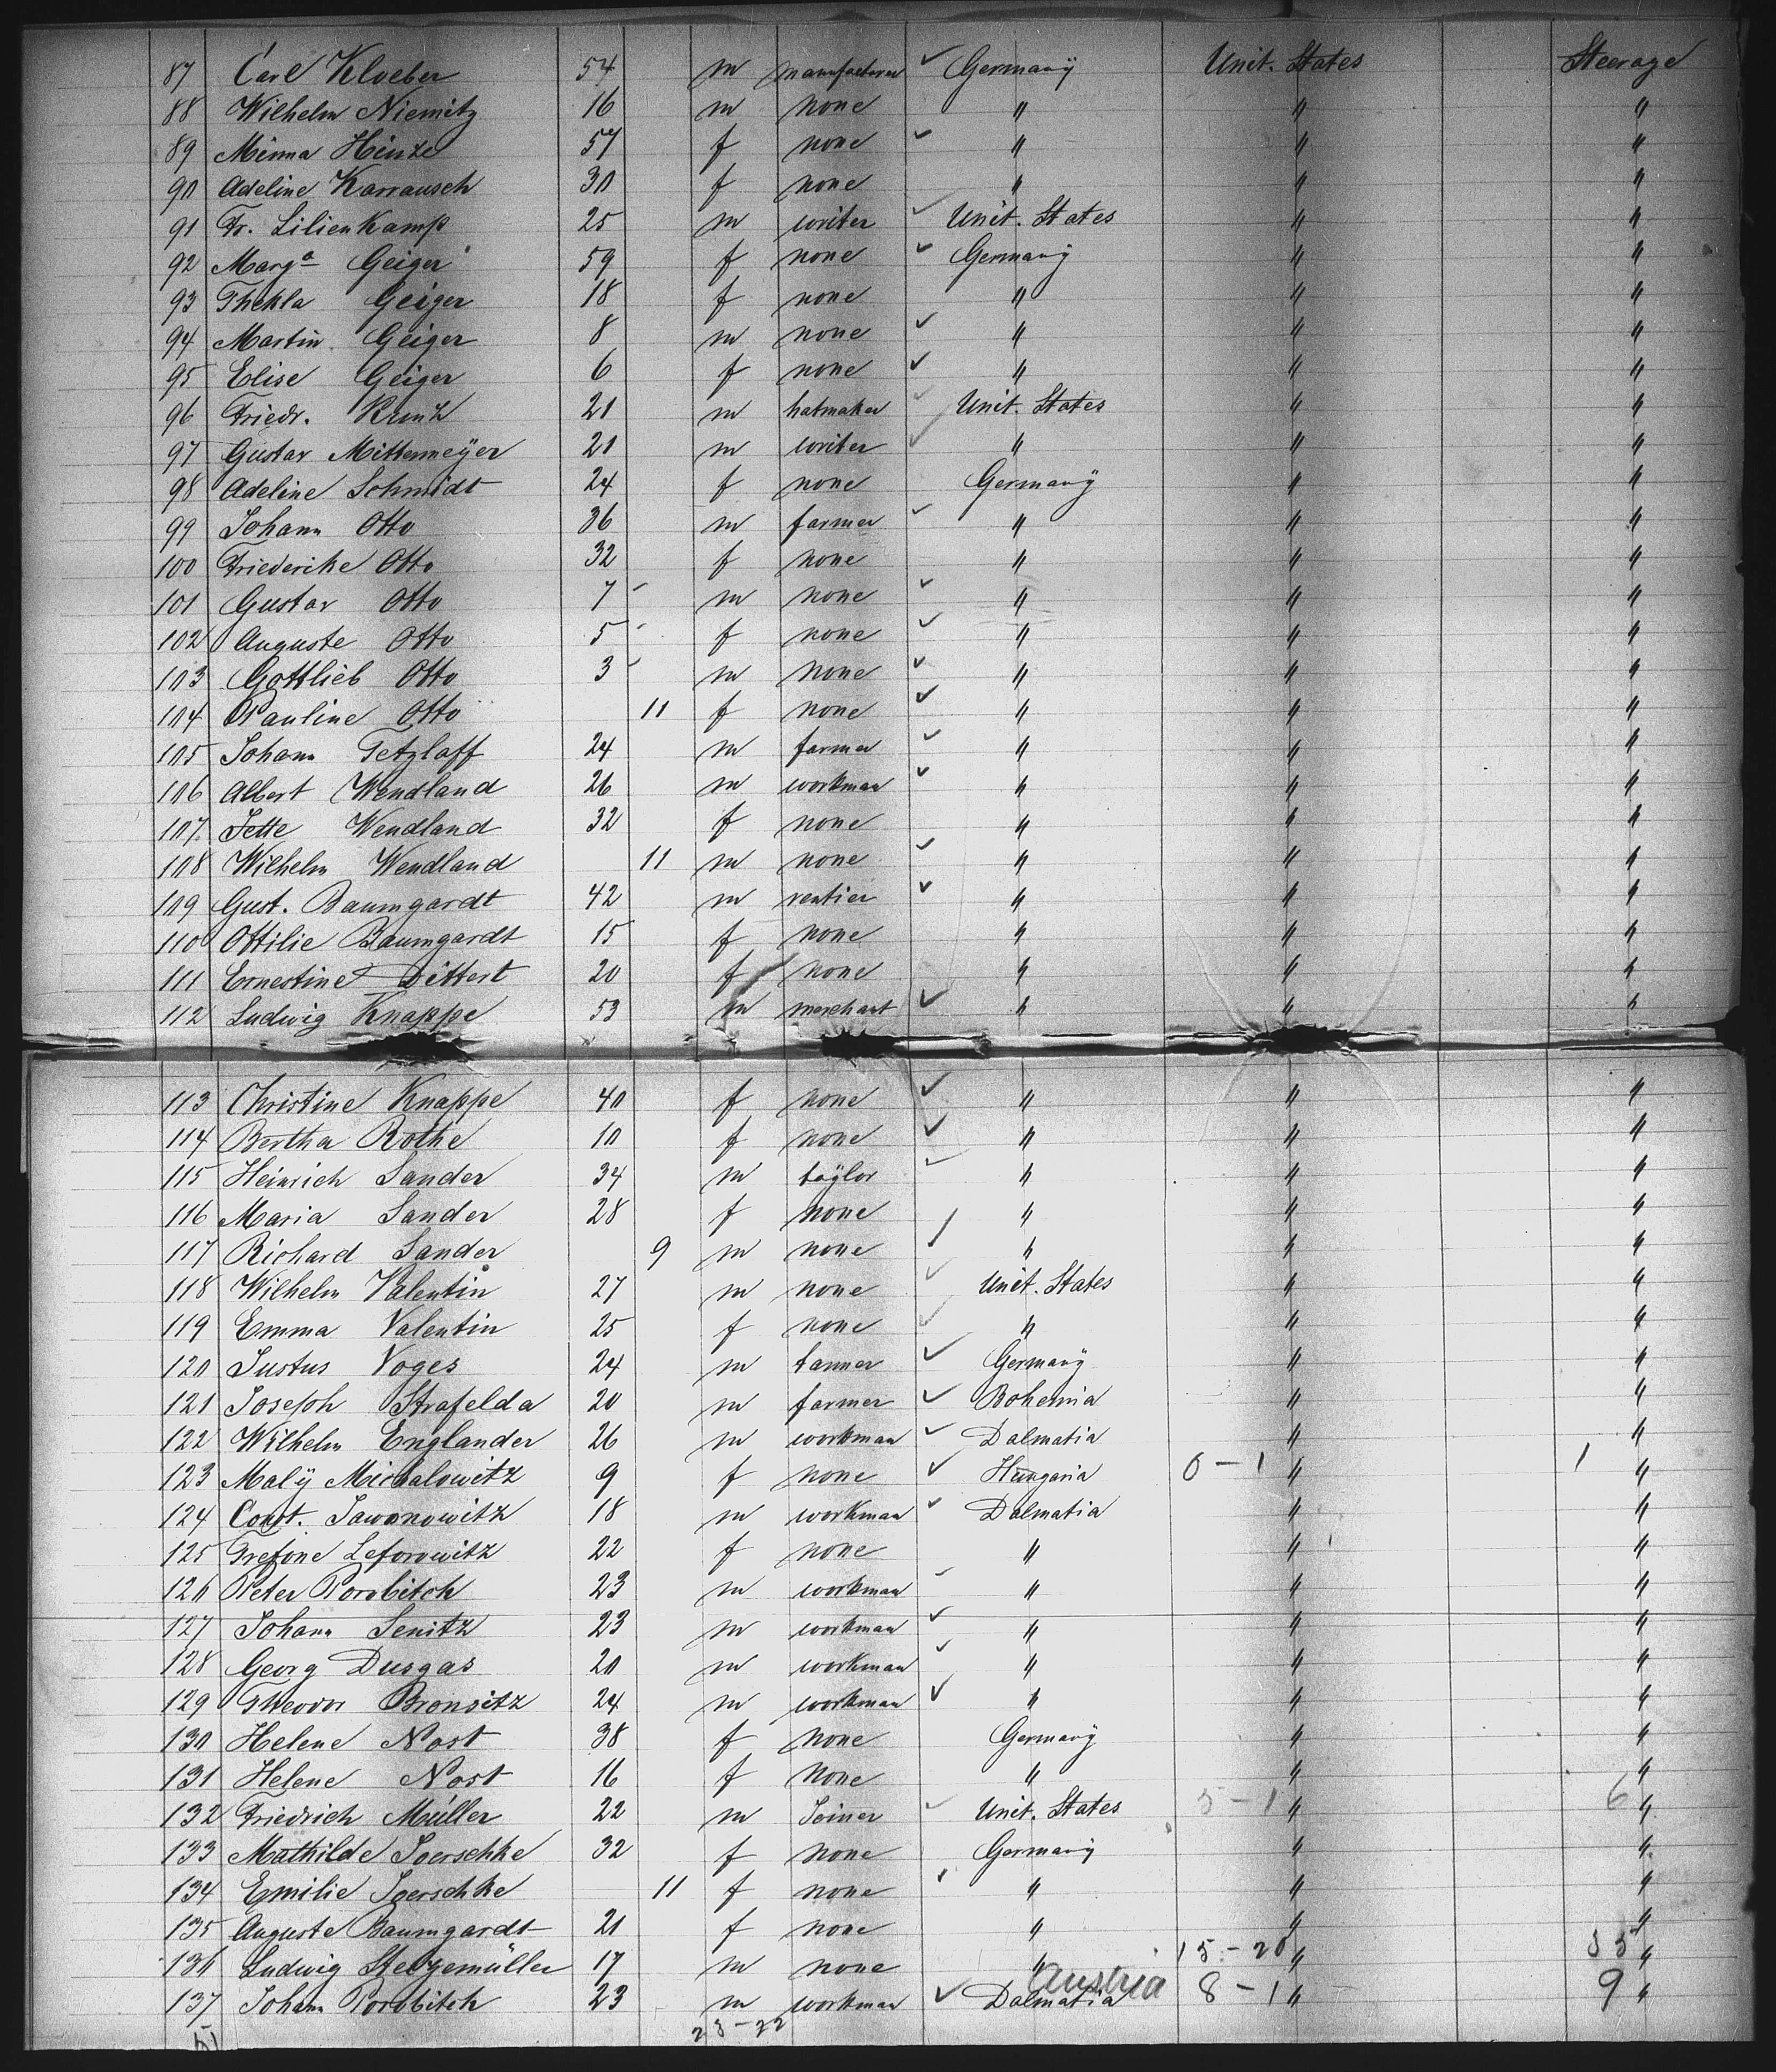 87 Carl Kloeber 54 m manufacturer ✓ Germany Unit. States Steerage
88 Wilhelm Niemitz 16 m none " " "
89 Minna Hinze 57 f none ✓ " " "
90 Adeline Karrausch 30 f none " " "
91 Fr. Lilienkamp 25 m writer ✓ Unit. States " "
92 Marga Geiger 59 f none ✓ Germany " "
93 Thekla Geiger 18 f none " " "
94 Martin Geiger 8 m none ✓ " " "
95 Elise Geiger 6 f none ✓ " " "
96 Friedr. 21 m hatmaker ✓ Unit. States " "
97 Gustav Mittermeÿer 21 m writer ✓ " " "
98 Adeline Schmidt 24 f none Germanÿ " "
99 Johann Otto 36 m farmer ✓ " " "
100 Friederike Otto 32 f none " " "
101 Gustav Otto 7 m none ✓ " " "
102 Auguste Otto 5 f none ✓ " " "
103 Gottlieb Otto 3 m none ✓ " " "
104 Pauline Otto 11 f none ✓ " " "
105 Johann Tetzlaff 24 m farmer ✓ " " "
106 Albert Wendland 26 m workman ✓ " " "
107 Jette Wendland 32 f none " " "
108 Wilhelm Wendland 11 m none ✓ " " "
109 Gust. Baumgardt 42 m rentier ✓ " " "
110 Ottilie Baumgardt 15 f none " " "
111 Ernestine Dittert 20 f none " " "
112 Ludwig Knappe 53 m merchant ✓ " " "
113 Christine Knappe 40 f none ✓ " " "
114 Bertha Rothe 10 f none ✓ " " "
115 Heinrich Sander 34 m taÿlor ✓ " " "
116 Maria Sander 28 f none " " "
117 Richard Sander 9 m none ✓ " " "
118 Wilhelm Valentin 27 m none ✓ Unit. States " "
119 Emma Valentin 25 f none ✓ " " "
120 Justus Voges 24 m tanner ✓ Germanÿ " "
121 Joseph Strafelda 20 m farmer ✓ Bohemia " "
122 Wilhelm Englander 26 m workman ✓ Dalmatia " "
123 Malÿ Michalowitz 9 f none ✓ Hungaria 0 - 1 " 1 "
124 Const. Jawonowitz 18 m workman ✓ Dalmatia " "
125 Trefone Leforowitz 22 f none " " "
126 Peter Porobitch 23 m workman ✓ " " "
127 Johann Senitz 23 m workman ✓ " " "
128 Georg Dusgas 20 m workman ✓ " " "
129 Theodor Bronsitz 24 m workman ✓ " " "
130 Helene Nost 38 f none Germanÿ " "
131 Helene Nost 16 f none " " "
132 Friedrich Müller 22 m Joiner ✓ Unit. States 5 - 1 " 6 "
133 Mathilde Joerschke 32 f none Germanÿ " "
134 Emilie Joerschke 11 f none ✓ " " "
135 Auguste Baumgardt 21 f none " " "
136 Ludwig Stelzemüller 17 m none " 15 - 20 " 35 "
137 Johann Porobitch 23 m workman ✓ Dalmatia Austria 8 - 1 " 9 "
51 28 - 22